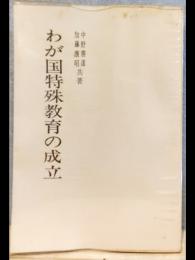 わが国特殊教育の成立
中野善達
加藤康昭 共著